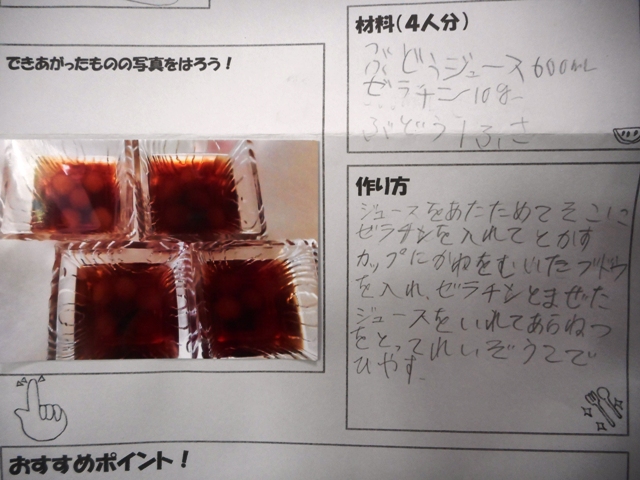 材料（4人分）
ぶどうジュース600ml
ゼラチン10g
ぶどう1ふさ
できあがったものの写真をはろう！
作り方
ジュースをあたためてそこに
ゼラチンを入れてとかす
カップにかわをむいたブドウ
を入れ、ゼラチンとまぜた
ジュースをいれてあらねつ
をとってれいぞうこで
ひやす。
おすすめポイント！